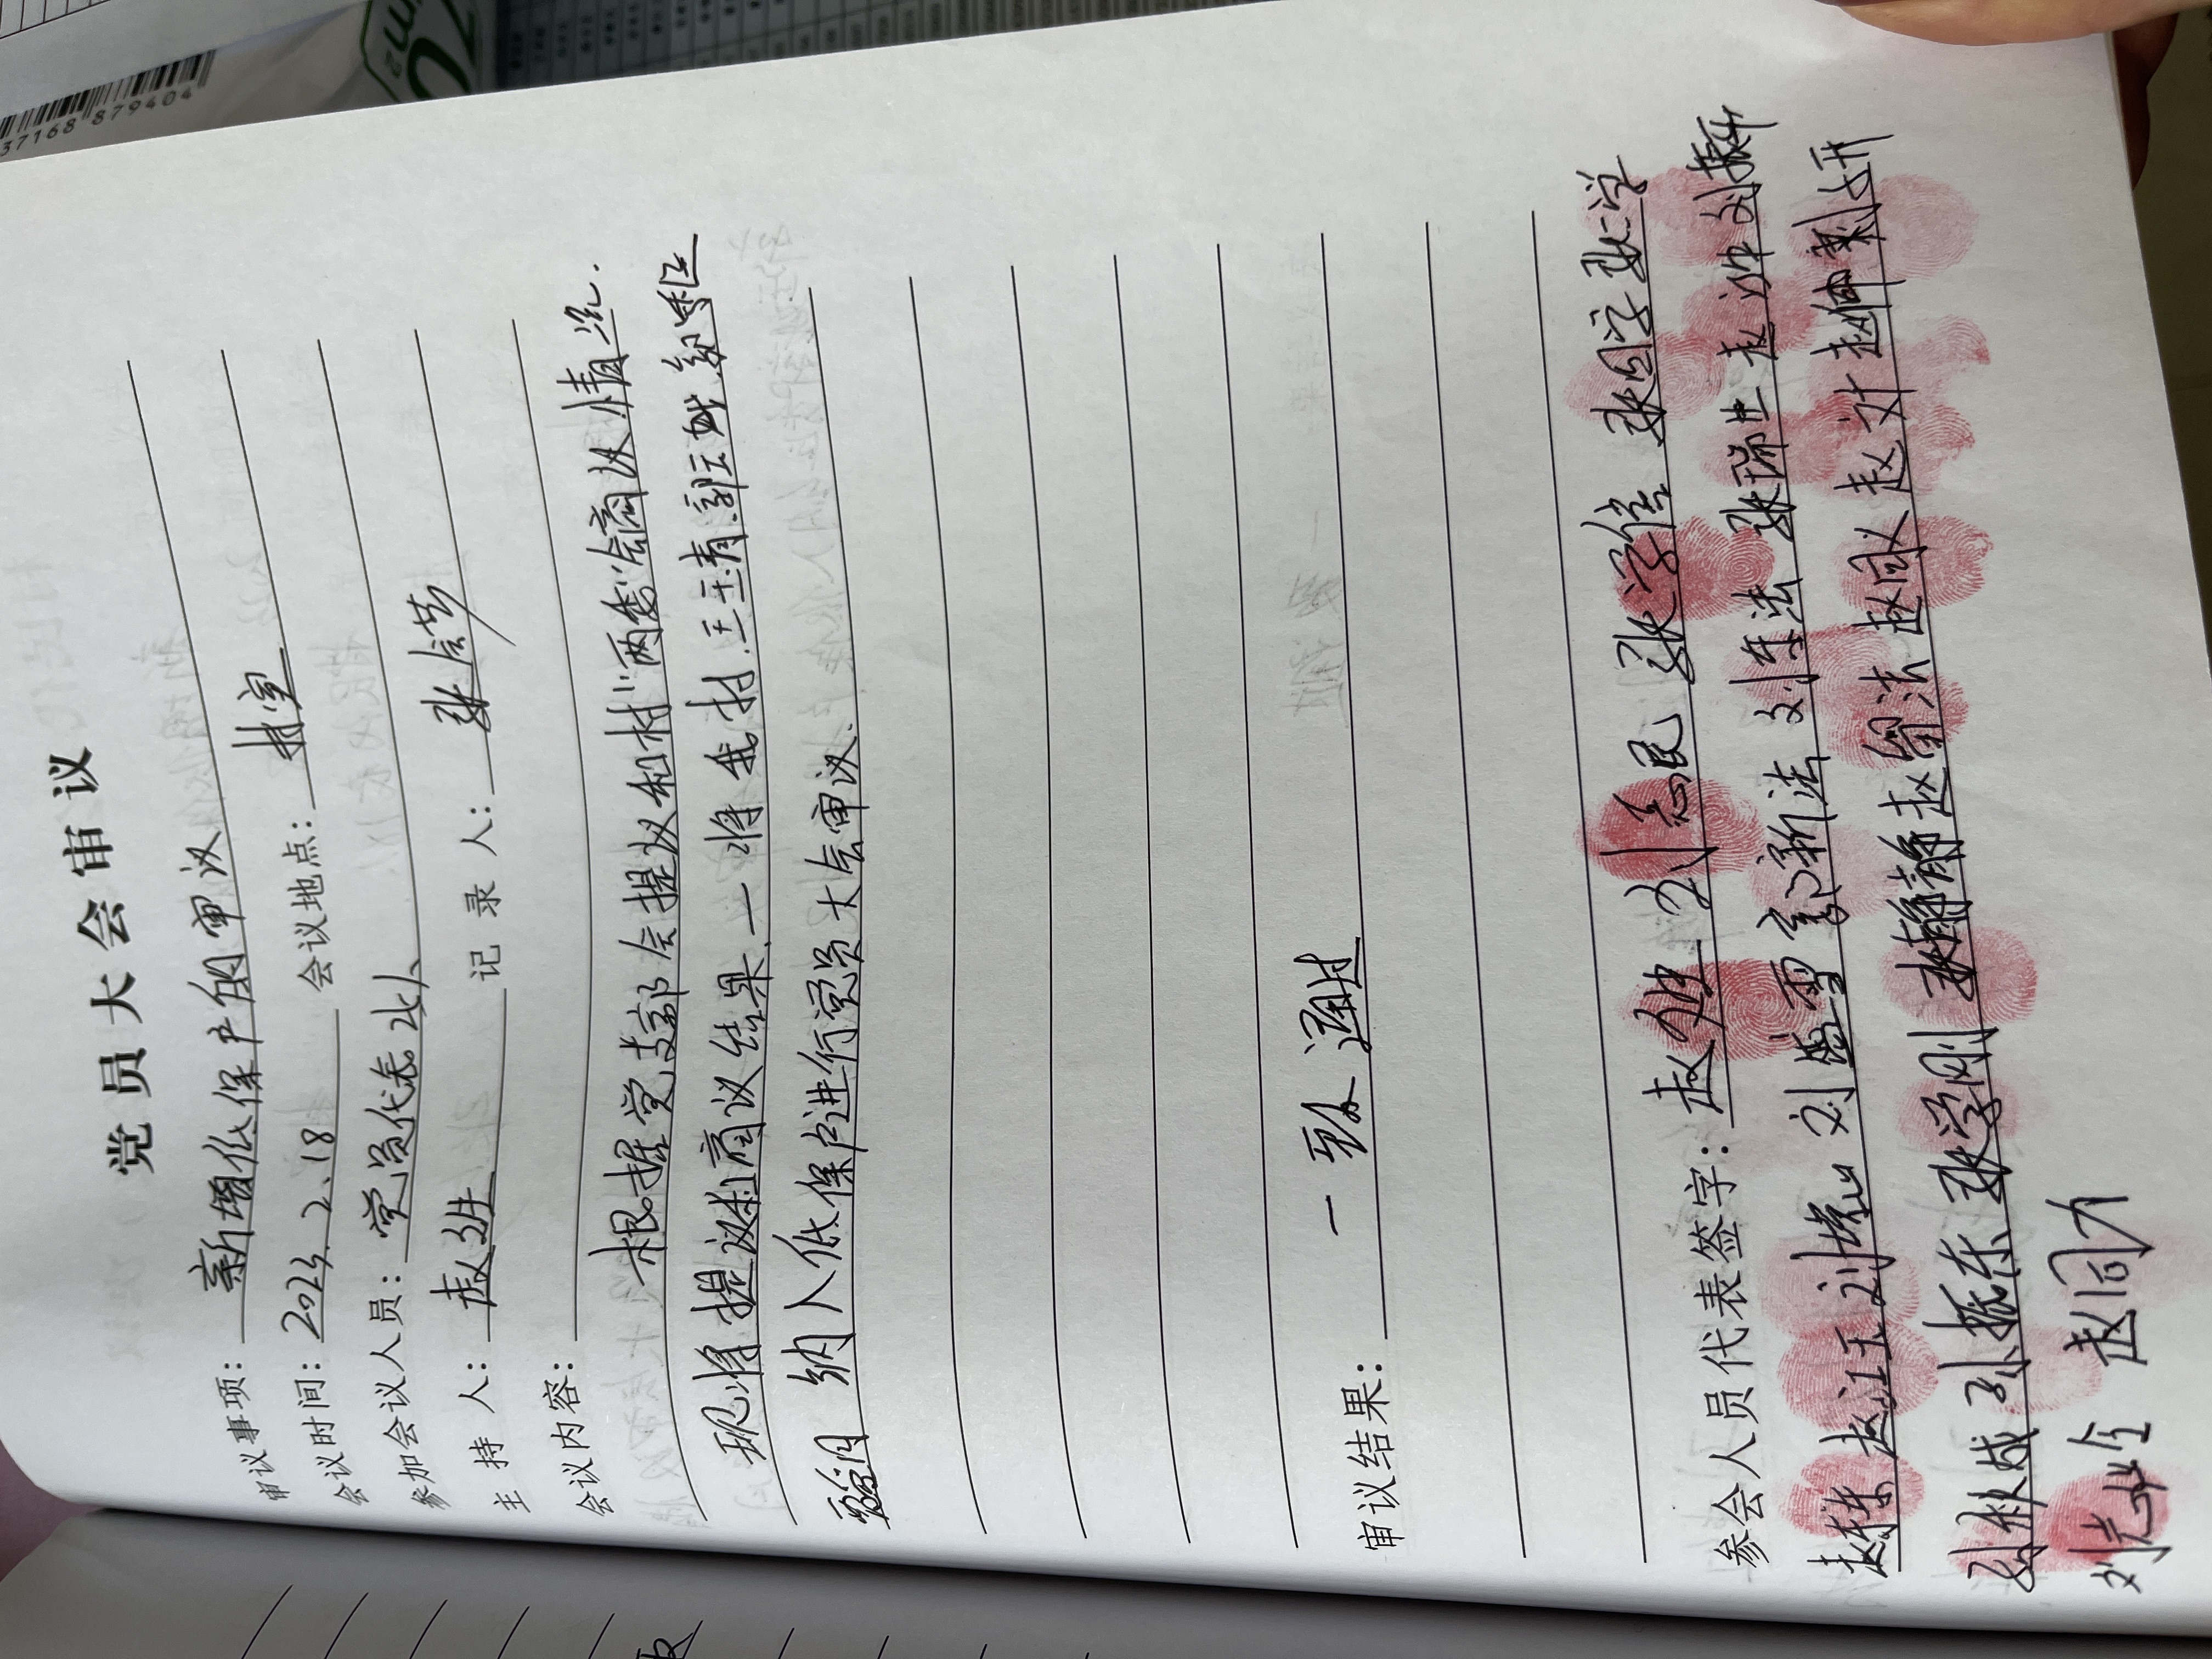 党员大会审议
审议事项: 新增低保户的审议
会议时间: 2023.2.18 会议地点: 村室
参加会议人员: 党员代表
主持人: 赵 记录人: 张会芳
会议内容:
根据党支部会提议和村"两委"会商议情况.
现将提议和商议结果.一将我村.王玉青.郭
纳入低保户进行党员大会审议.
审议结果: 一致通过
参会人员代表签字: 赵 刘志民 张学信 张国字 张学
赵 赵江玉 刘 刘盛雪 郭新法 刘东法 张瑞 赵 刘振
孙秋成 孙振东 张学刚 张静静 赵留法 赵同义 赵文 赵
刘志 赵同力
37168 879404
m2
70